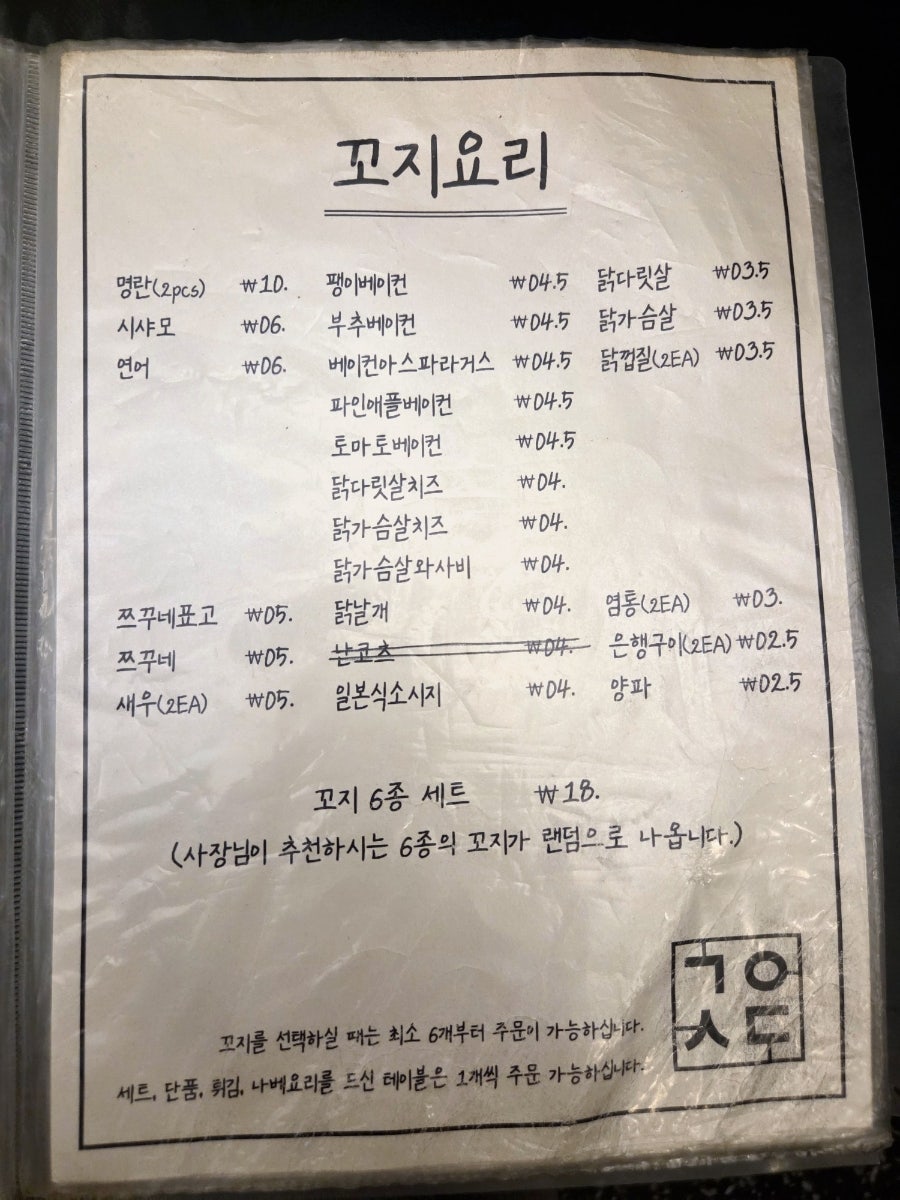 꼬지요리
명란(2pcs) ₩10. 팽이베이컨 ₩04.5 닭다릿살 ₩03.5
시샤모 ₩06. 부추베이컨 ₩04.5 닭가슴살 ₩03.5
연어 ₩06. 베이컨아스파라거스 ₩04.5 닭껍질(2EA) ₩03.5
파인애플베이컨 ₩04.5
토마토베이컨 ₩04.5
닭다릿살치즈 ₩04.
닭가슴살치즈 ₩04.
닭가슴살와사비 ₩04.
쯔꾸네표고 ₩05. 닭날개 ₩04. 염통(2EA) ₩03.
쯔꾸네 ₩05. 난코츠 ₩04. 은행구이(2EA) ₩02.5
새우(2EA) ₩05. 일본식소시지 ₩04. 양파 ₩02.5
꼬지 6종 세트 ₩18.
(사장님이 추천하시는 6종의 꼬지가 랜덤으로 나옵니다.)
ㄱㅇ
ㅅㄷ
꼬지를 선택하실 때는 최소 6개부터 주문이 가능하십니다.
세트, 단품, 튀김, 나베요리를 드신 테이블은 1개씩 주문 가능하십니다.